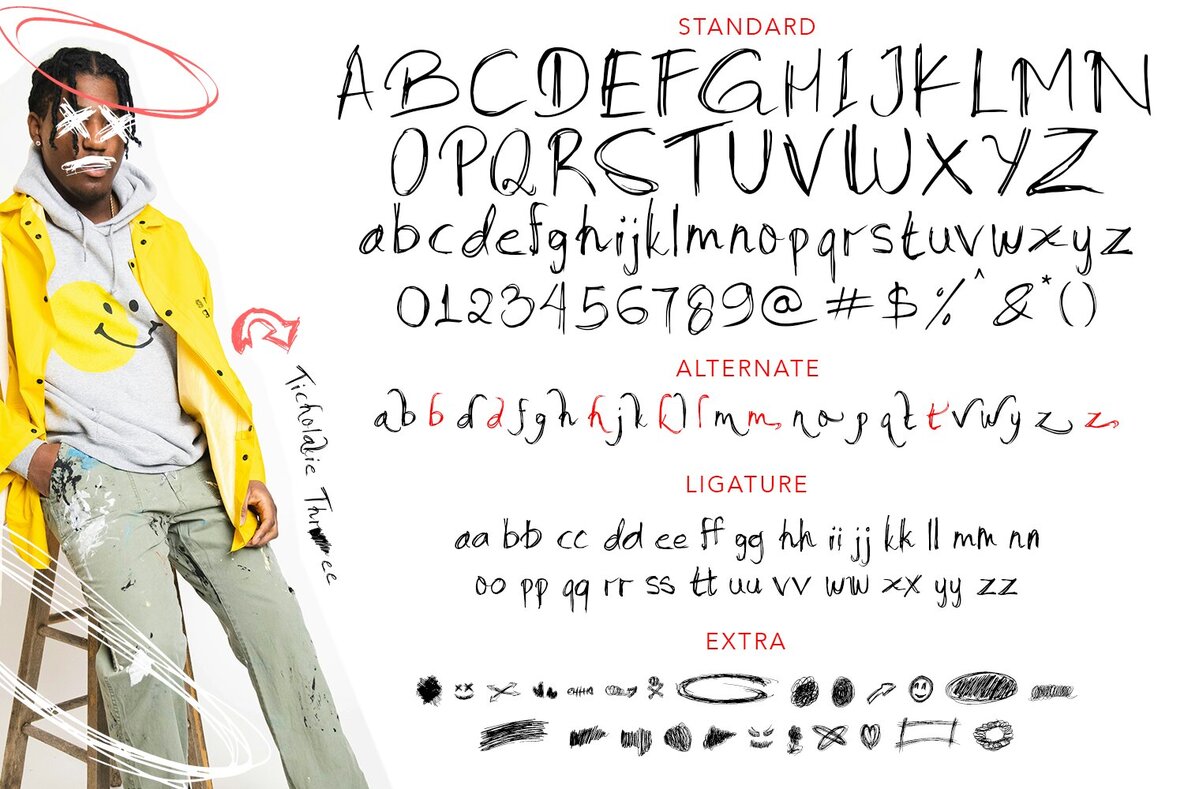 STANDARD
ABCDEFGHIJKLMN
OPQRSTUVWXYZ
abcdefghijklmnopqrstuvwxyz
0123456789@#$%^&*()
ALTERNATE
abbddfghhjkkllmmnopqttvwyzz
LIGATURE
aa bb cc dd ee ff gg hh ii jj kk ll mm nn
oo pp qq rr ss tt uu vv ww xx yy zz
EXTRA
Ticholaie Three